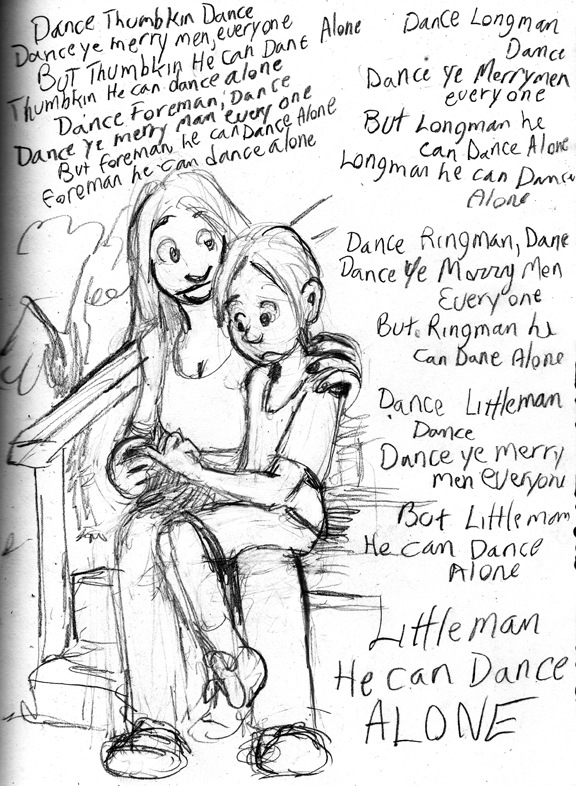 Dance Thumbkin Dance
Dance ye merry men, everyone
But Thumbkin He Can Dane Alone
Thumbkin He can dance alone
Dance Foreman, Dance
Dance ye merry man every one
But foreman he can Dance Alone
foreman he can dance alone
Dance Longman
Dance
Dance Ye Merrymen
everyone
But Longman he
can Dance Alone
Longman he can Dance
Alone
Dance Ringman, Dane
Dance Ye Marry Men
Everyone
But Ringman he
can Dane Alone
Dance Littleman
Dance
Dance ye merry
men everyone
But Littleman
He can Dance
Alone
Littleman
He can Dance
ALONE